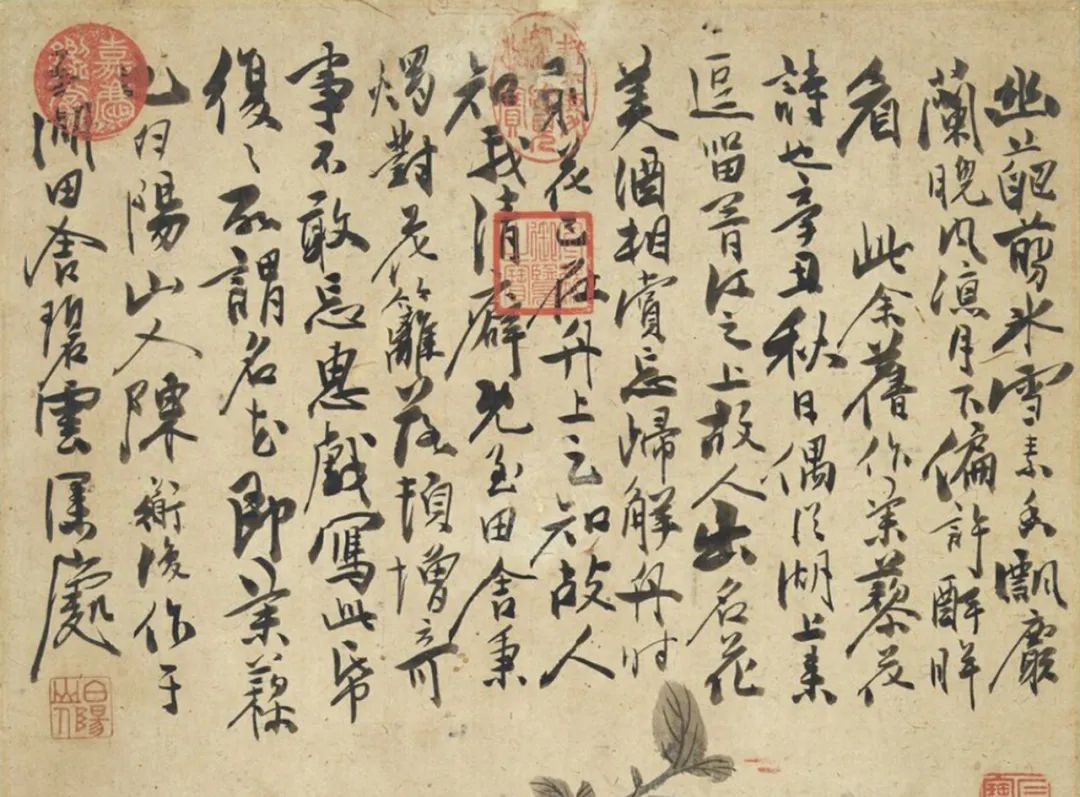 幽葩剪冰雪素香飄麝
蘭晚風涼月下偏許醉眸
看 此余舊作茉藜花
詩也辛丑秋日偶從湖上來
逗留胥江之上故人出名花
美酒相賞忘歸解舟時
花已在舟上已知故人
知我清癖 至田舍秉
燭對花籬落頓增 可
事不敢忘惠戲寫此紙
復之所謂名花即茉藜
也白陽山人陳衜復作于
五湖田舍碧雲深處
白陽山人